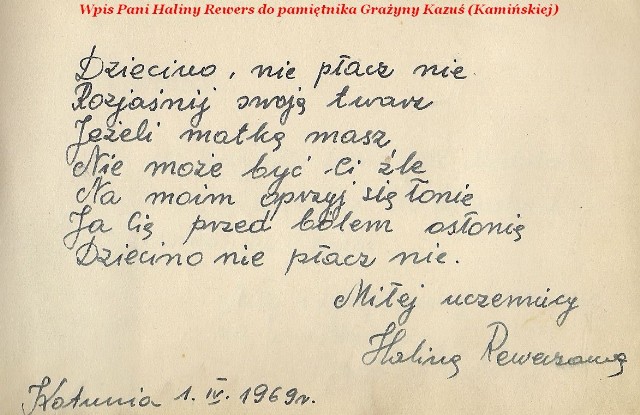 Wpis Pani Haliny Rewers do pamiętnika Grażyny Kazuś (Kamińskiej)
Dziecino, nie płacz nie
Rozjaśnij swoją twarz
Jeżeli matkę masz
Nie może być Ci źle
Na moim oprzyj się łonie
Ja Cię przed bólem osłonię
Dziecino nie płacz nie.
Miłej uczennicy
Halina Rewersowa
Kotunia 1. IV. 1969r.